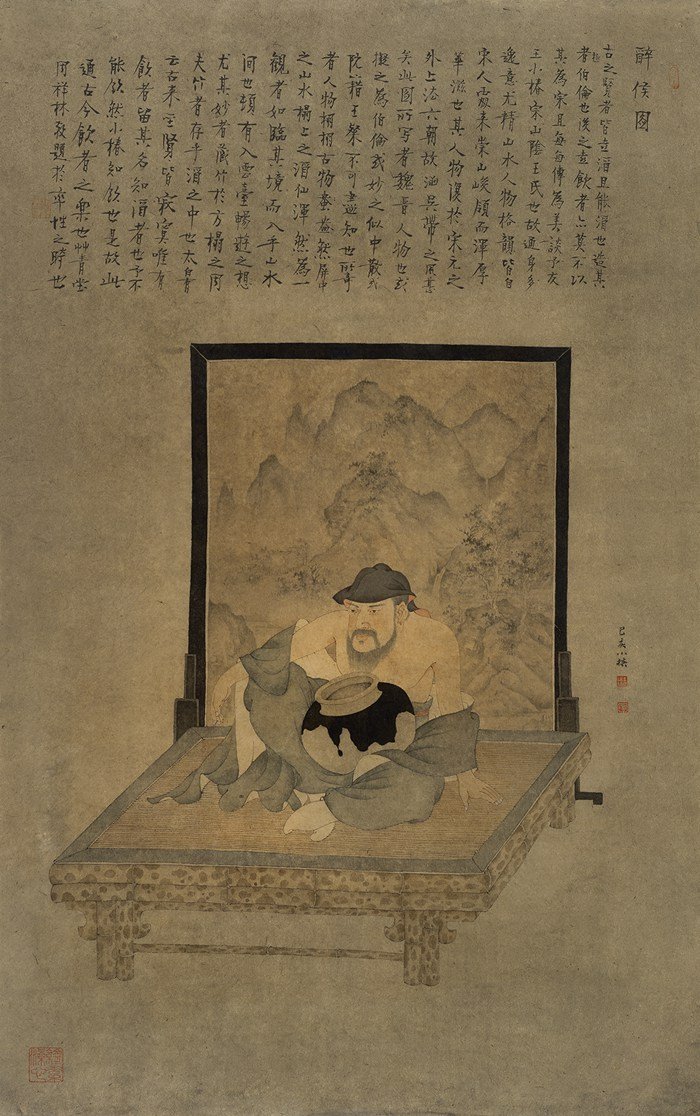 醉侯图
古之賢者皆善酒且能酒也益其
者伯倫也後之善飲者亦莫不以
其為宗且每每傳為美談予友
王小椿宋山陰王氏也故通身多
逸意尤精山水人物格韻皆自
宋人處來崇山峻嶺而渾厚
華滋也其人物復於宋元之
外上法六朝故涵吳帶之風意
矣此圖所寫者魏晉人物也或
擬之為伯倫或妙之似中散或
阮籍王粲不可盡知也所寄
者人物栩栩古物盎盎然屏中
之山水榻上之酒仙渾然為一
觀者如臨其境而入乎山水
間也頓有入雲臺暢遊之想
尤其妙者藏竹於方榻之間
夫竹者存乎酒之中也太白嘗
云古來聖賢皆寂寞唯有
飲者留其名知酒者也予不
能飲然小椿知飲也是故此
通古今飲者之樂也艸青堂
周祥林敬題於率性之時也
己亥小椿